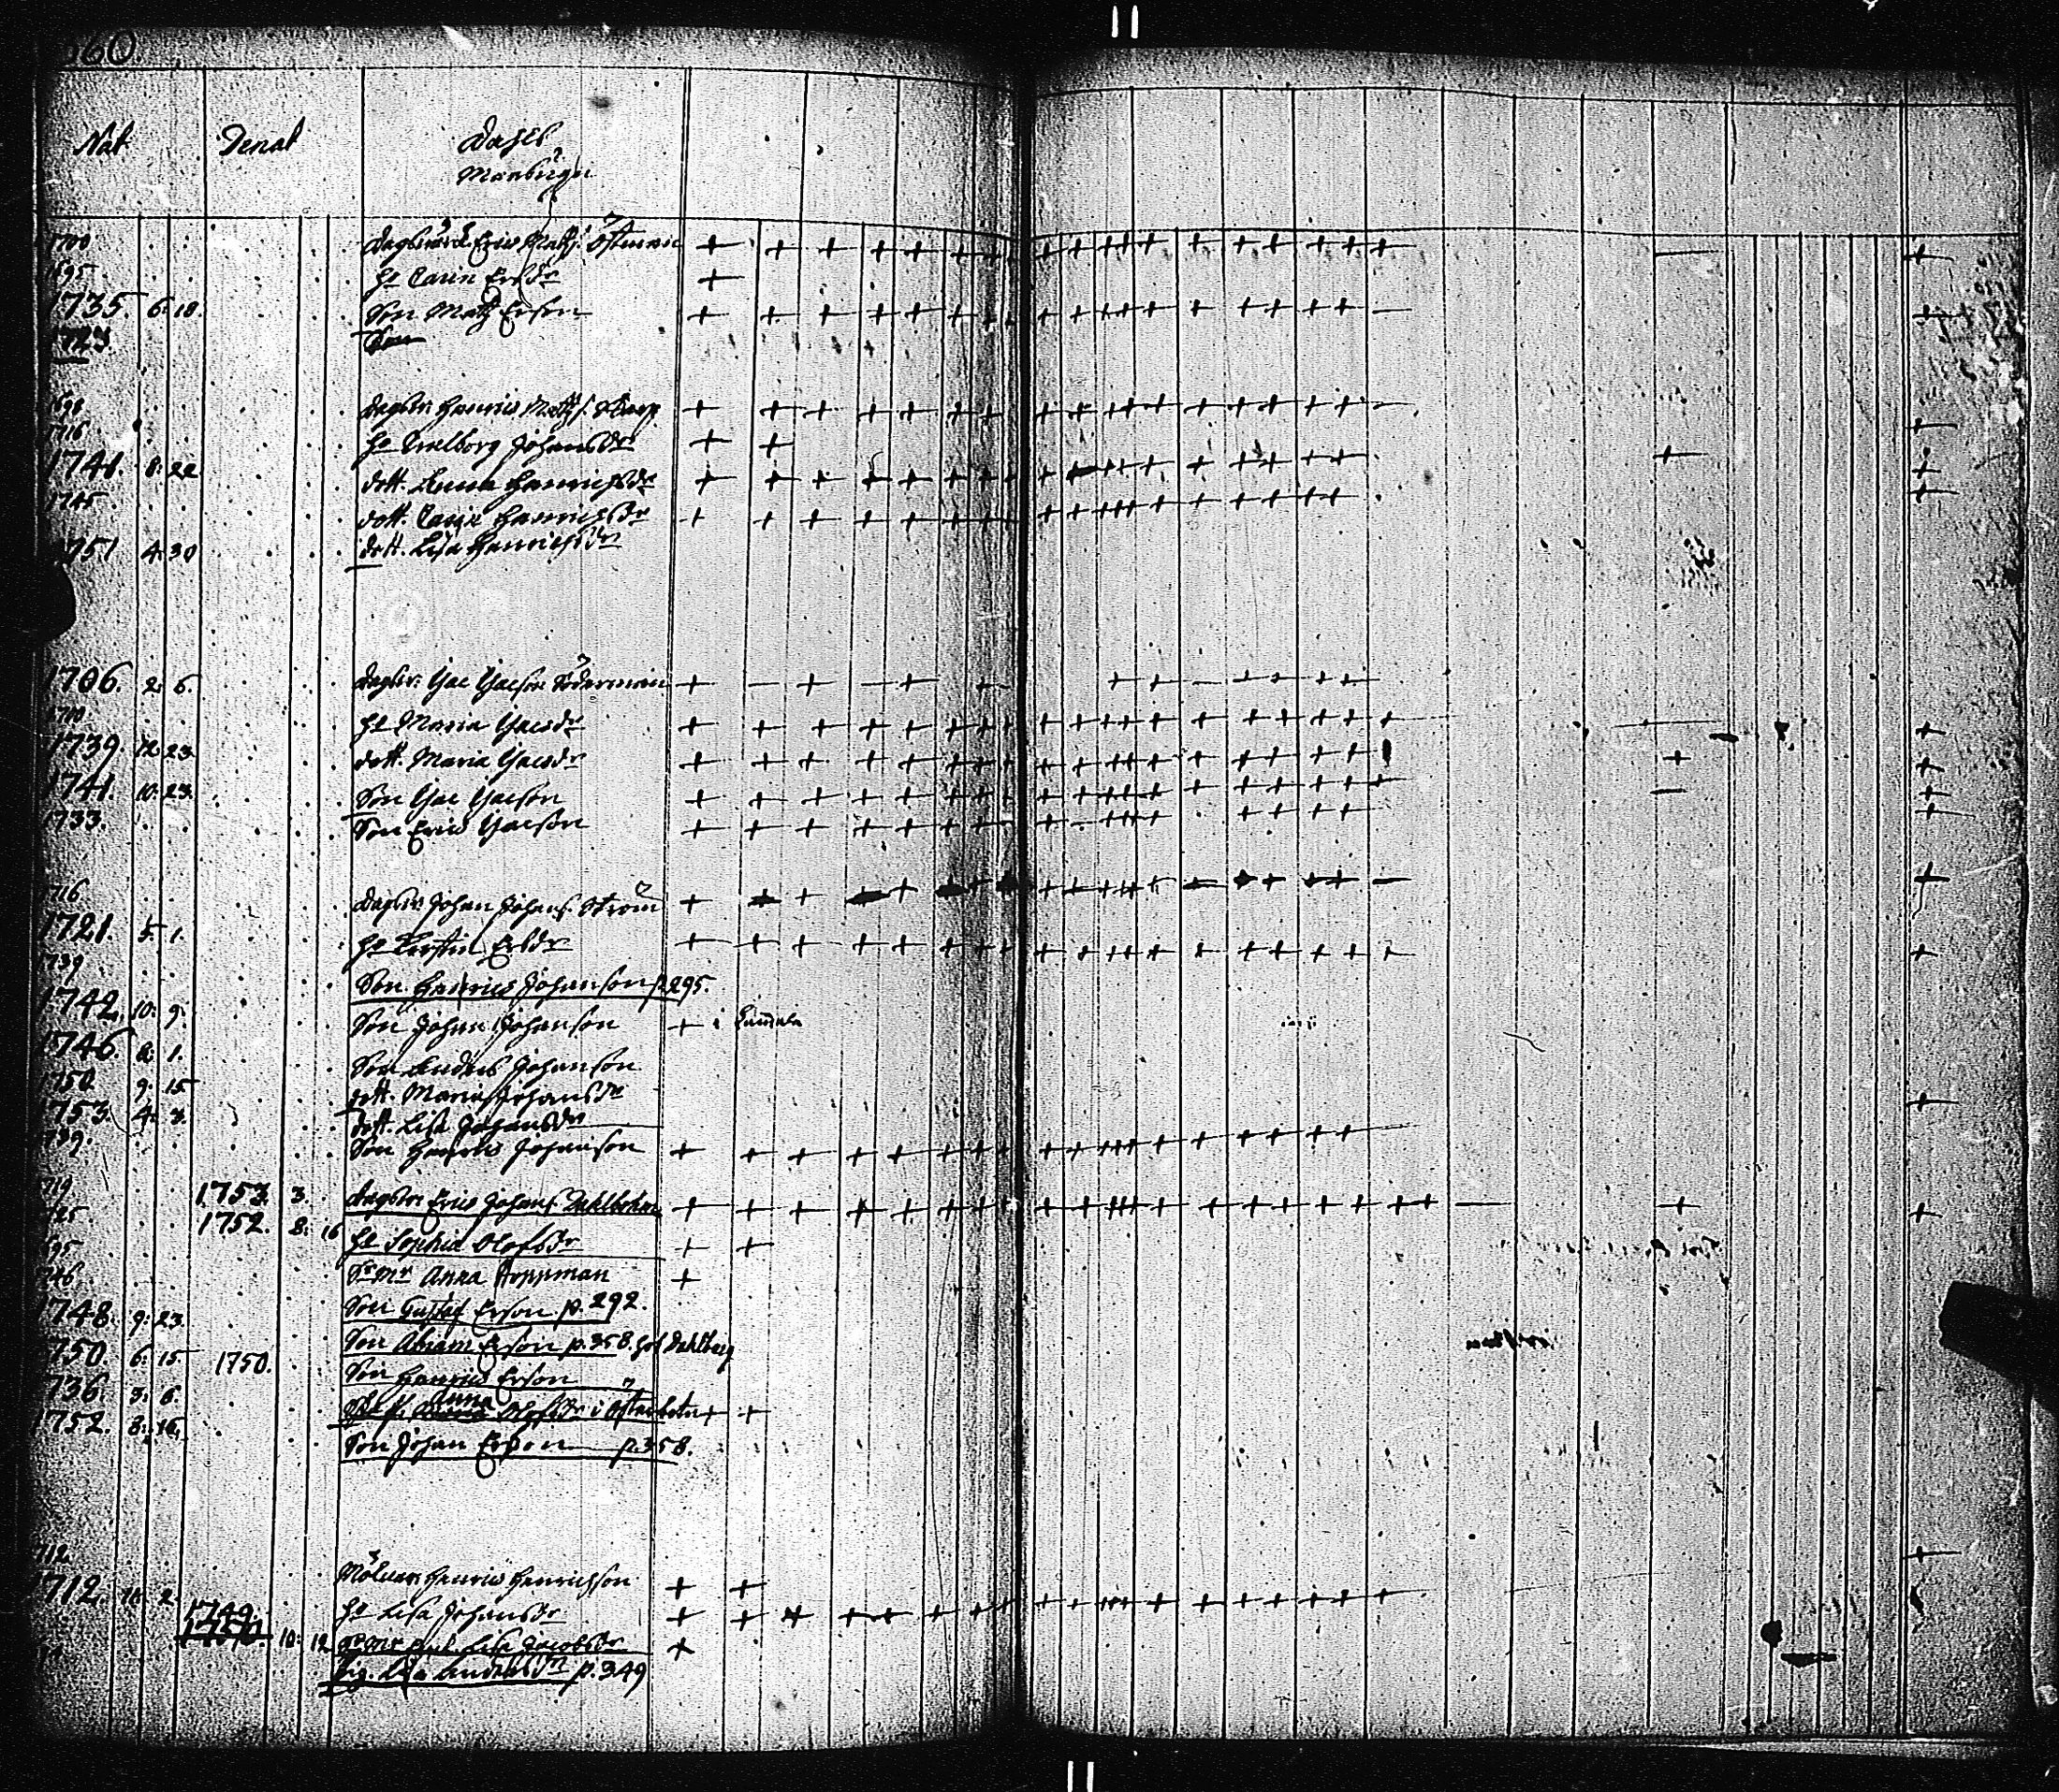 360.
Nat. Denat. Dahls
1700 Dagsw: Eric Matss. Östman
1695 H: Carin Ersdr
1735. 6: 18. Son Matts Erson
1723. Son
Dagsw. Henric Matss.
1716 H: Walborg Johansdr
1741. 8: 22 dott. Anna Henrichsdr
1745. dott. Carin Henrichsdr
1751 4: 30 dott. Lisa Henrichsdr
1706. 2: 6. Dagsw: Jac Jacson Söderman
1710 H: Maria Jacsdr
1739. 12: 23. dott. Maria Jacsdr
1741. 10: 23. Son Jac Jacson
1733. Son Eric Jacson
1716 Dagsw Johan Johans. Ström
1721. 5: 1. H: Kerstin Ersdr
1739 Son Henric Johanson p. 295.
1742. 10: 9. Son Johan Johanson
1746. 2: 1. Son Anders Johanson
1750. 9: 15 dott. Maria Johansdr
1753. 4: 3. dott. Lisa Johansdr
1739. Son Henric Johanson
1719 1753 3. Dagsw Eric Johans. Dahlbohm
1725 1752. 8: 16 H: Sophia Olofsdr
1695 Anna Hoppman
1746 Son Gustaf Erson. p. 292.
1748. 9: 23. Son Abram Erson p. 358. Dahlberg
1750. 6: 15 1750. Son Henric Erson
1736. 3: 6. Anna Olofsdr i Österbotn
1752. 8: 16. Son Johan Erson p. 358.
1712 Mölnar Henric Henrichson
1712. 11: 2 H: Lisa Johansdr
1749. 10: 12 Lisa Jacobsdr
Lisa Andersdr p. 349